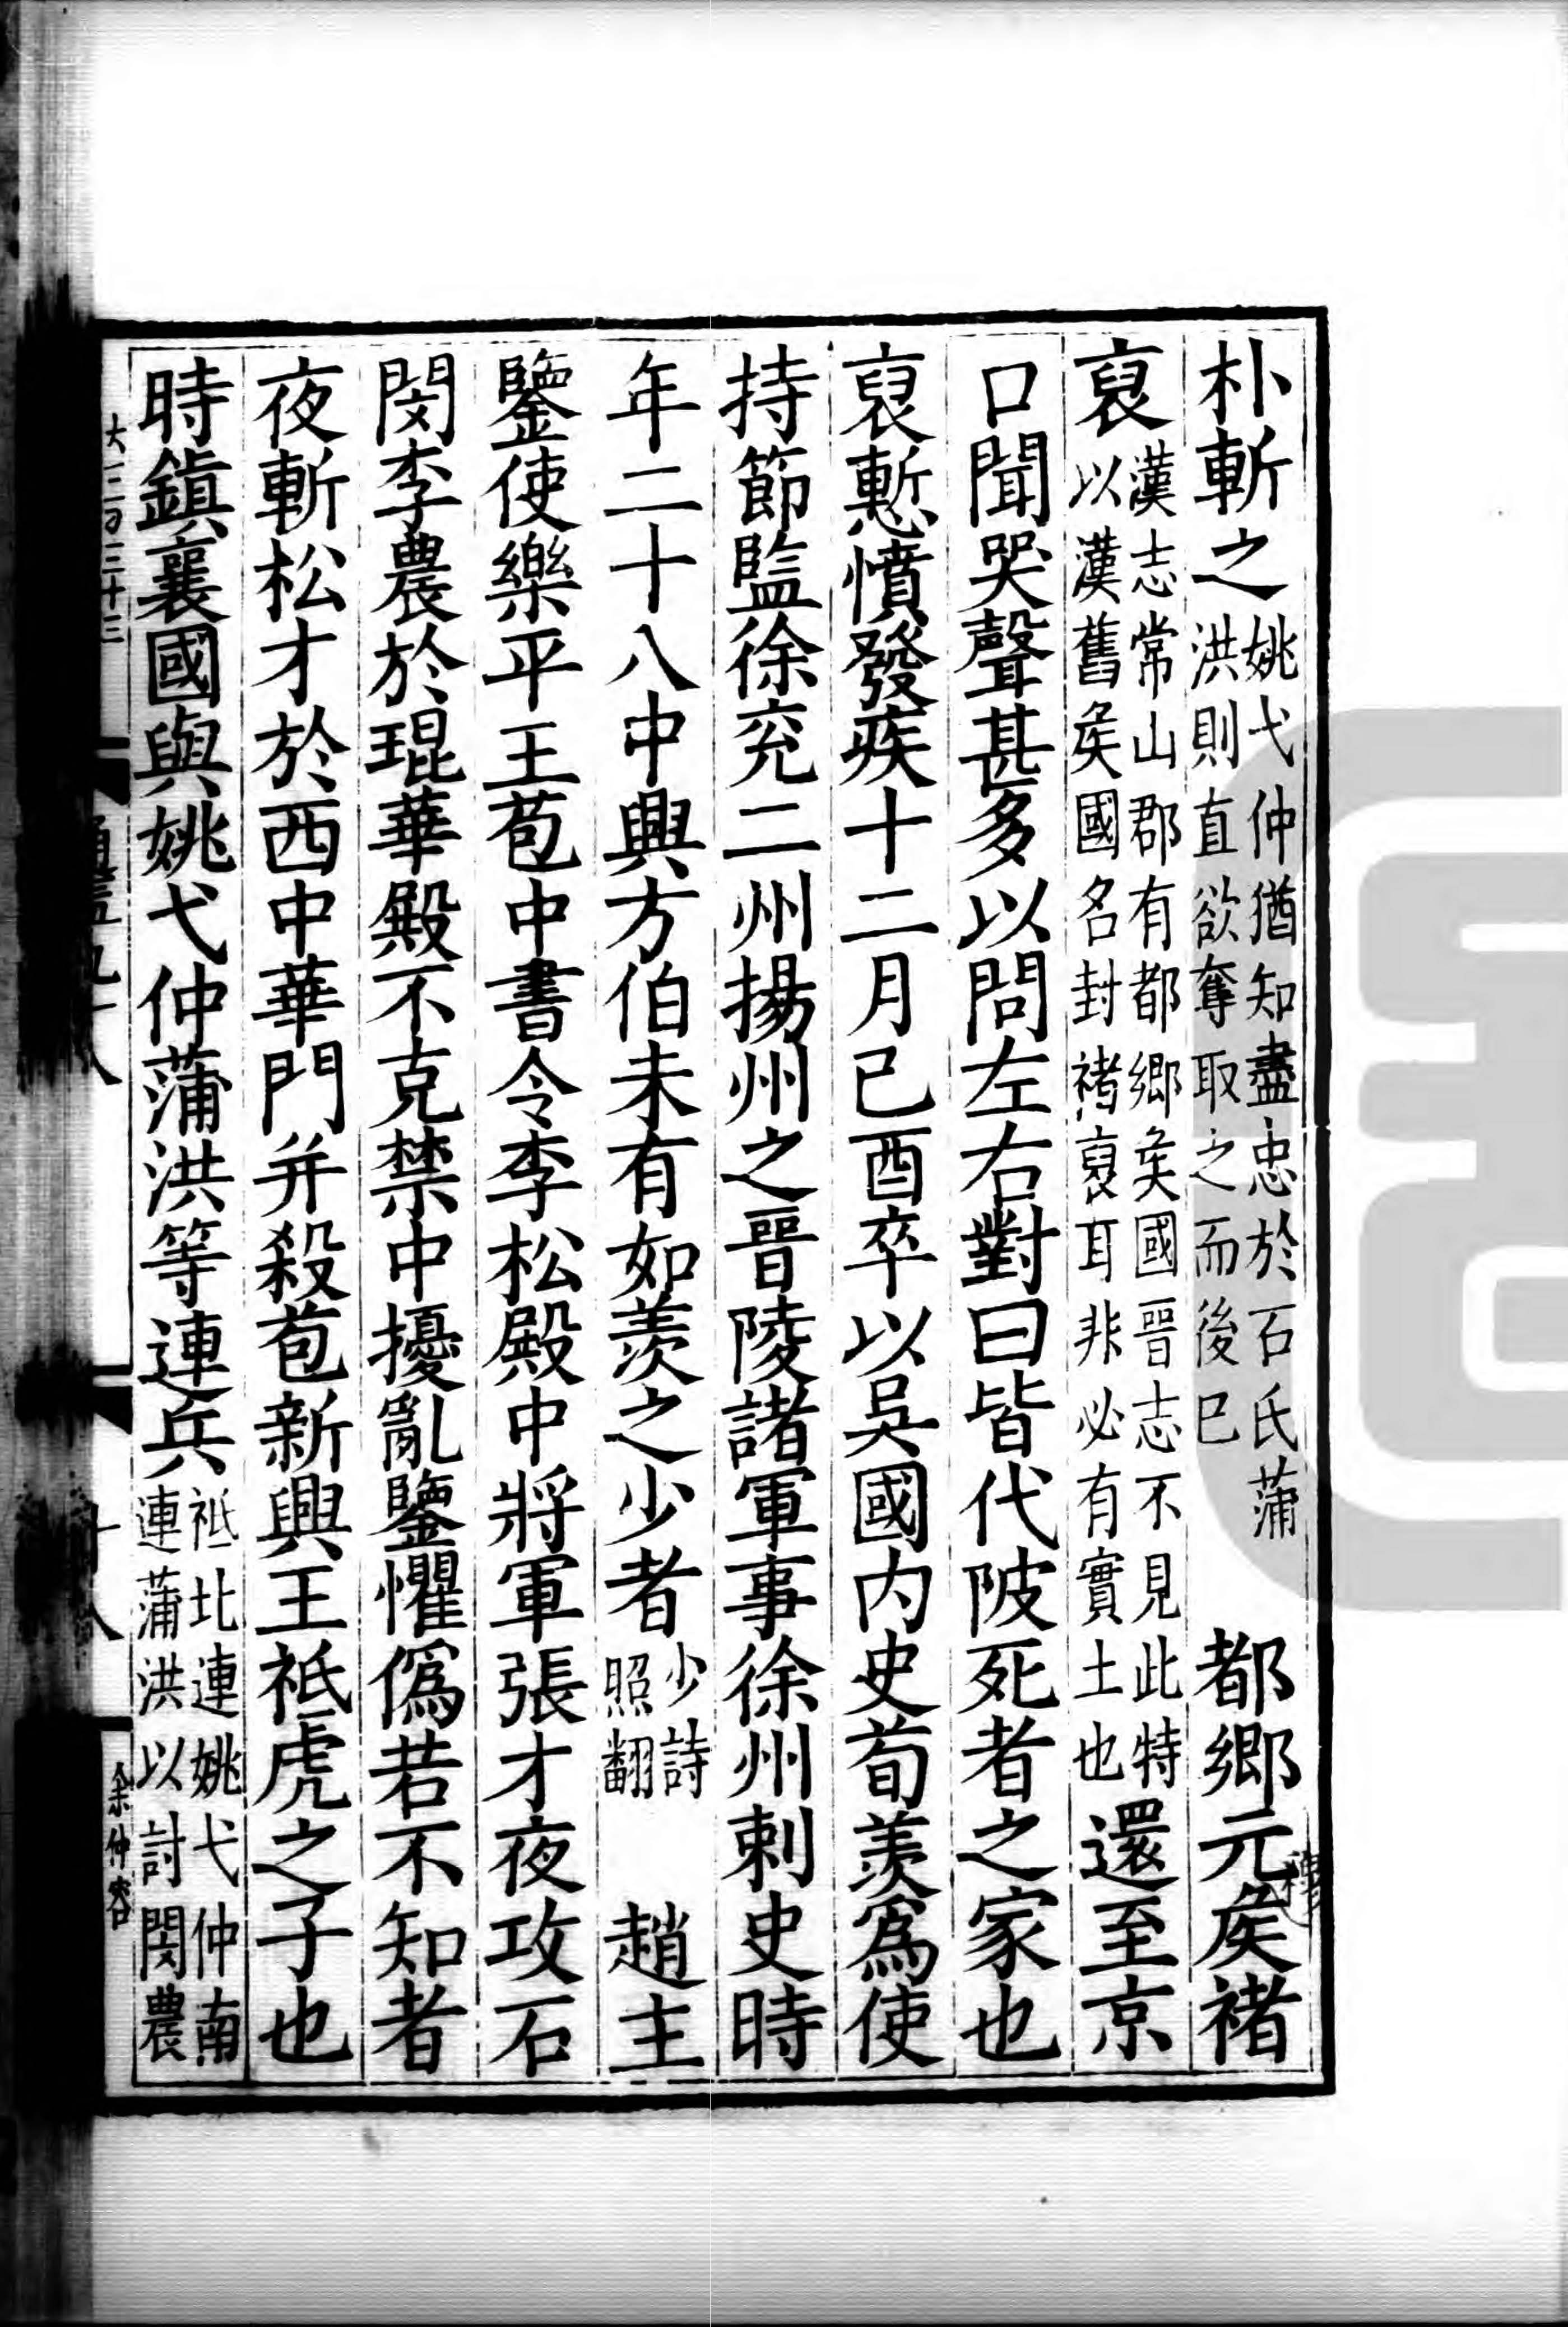 朴斬之姚弋仲猶知盡忠於石氏蒲洪則直欲奪取之而後已都鄉元侯褚
裒漢志常山郡有都鄉侯國晉志不見此特以漢舊侯國名封褚裒耳非必有實土也還至京
口聞哭聲甚多以問左右對曰皆代陂死者之家也
裒慙憤發疾十二月己酉卒以吳國内史荀羨爲使
持節監徐兖二州揚州之晉陵諸軍事徐州刺史時
年二十八中興方伯未有如羨之少者少詩照翻趙主
鑒使樂平王苞中書令李松殿中將軍張才夜攻石
閔李農於琨華殿不克禁中擾亂鑒懼僞若不知者
夜斬松才於西中華門并殺苞新興王祗虎之子也
時鎮襄國與姚弋仲蒲洪等連兵祗北連姚弋仲南連蒲洪以討閔農
大三百三十三
十八
余仲容